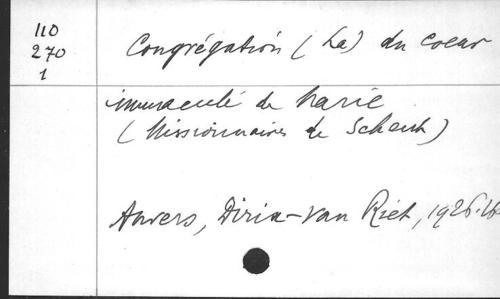 110
270
1
Congrégation (La) du coeur
immaculé de Marie
(Missionnaires de Scheut)
Anvers, Dirix-van Riet, 1926.